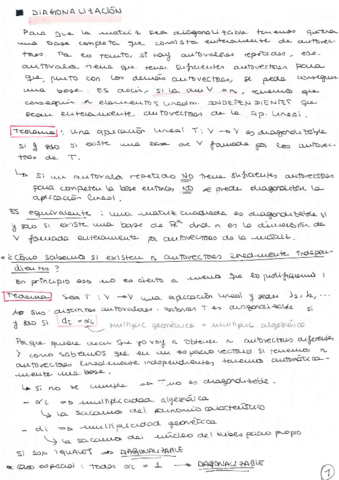 DIAGONALIZACIÓN
Para que la matriz sea diagonalizable tenemos que tener
una base completa que consista enteramente de autovec-
tores. Por lo tanto, si hay autovalores repetidos, ese
autovalor tiene que tener suficientes autovectores para
que, junto con los demás autovectores, se pueda conseguir
una base. Es decir, si la dim V = n, tenemos que
conseguir n elementos linealm. INDEPENDIENTES que
sean enteramente, autovectores de la ap. lineal.
Teorema: Una aplicación lineal T: V → V es diagonalizable
si y sólo si existe una base de V formada por los autovec-
tores de T.
↳ Si un autovalor repetido NO tiene suficientes autovectores
para completar la base entonces NO se puede diagonalizar la
aplicación lineal.
Es equivalente: una matriz cuadrada es diagonalizable si
y sólo si existe una base de ℝⁿ dnd n es la dimensión de
V formada enteramente x autovectores de la matriz.
¿Cómo sabemos si existen n autovectores linealmente indepen-
dientes?
En principio eso no es cierto a menos que lo justifiquemos!
Teorema Sea T: V → V una aplicación lineal y sean λ1, λ2, ...
sus distintos autovalores. Entonces T es diagonalizable si
y sólo si di = αi multiplic. geométrica = multiplic. algebraica
Porque quiere decir que yo voy a obtener n autovectores diferentes
y como sabemos que en un espacio vectorial si tenemos n
autovectores linealmente independientes tenemos automática-
mente una base.
↳ Si no se cumple ⇒ T no es diagonalizable.
- αi ⇒ multiplicidad algebraica
↳ la sacamos del polinomio característico
- di ⇒ multiplicidad geométrica
↳ la sacamos del núcleo del subespacio propio
Si son iguales → DIAGONALIZABLE
* Caso especial: todos αi = 1 → DIAGONALIZABLE
1